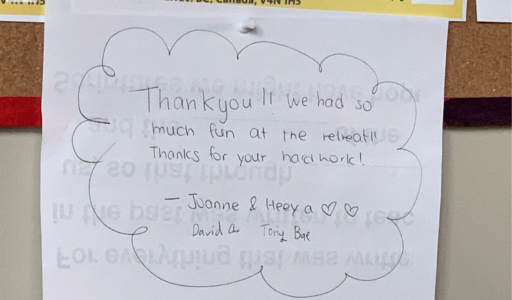 BC, Canada, V4N 1H5
Thankyou!! we had so
much fun at the retreat!!
Thanks for your hard work!
- Joanne & Heeya ♡ ♡
David Tony Bae
Scriptures we might have hope
and the
us, so that through
in the past was written to teac
For everything that was writte